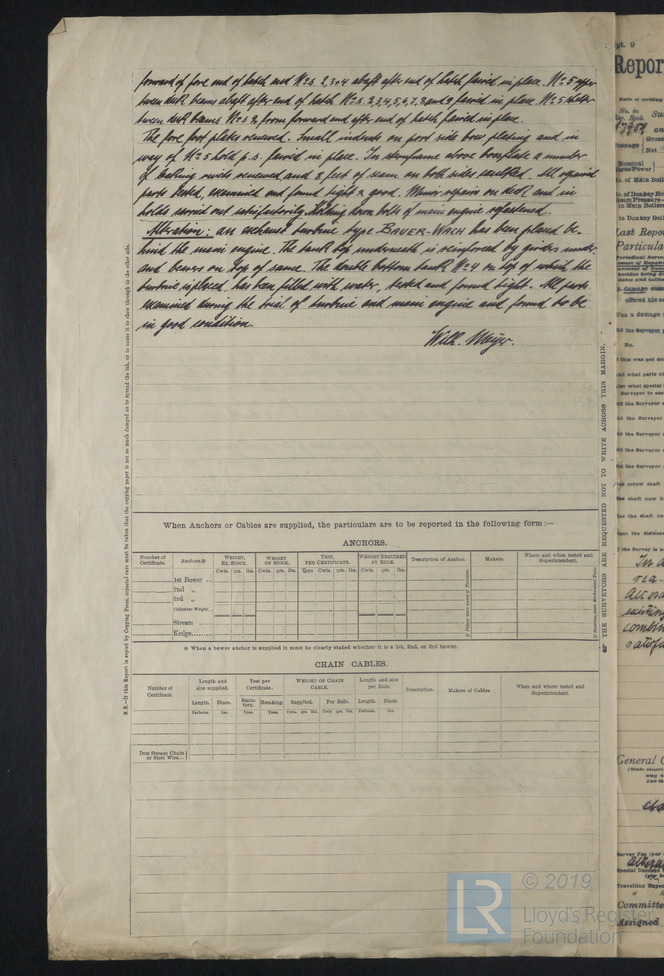 forward of fore end of hatch and Nos. 2, 3 + 4 abaft after end of hatch faired in place. No 5 upper
tween deck beams abaft after end of hatch Nos. 2, 3, 4, 5, 6, 7, 8 and 9 faired in place. No 5 lower
tween deck beams No. 2 from forward end after end of hatch faired in place.
The fore foot plates renewed. Small indents on port side bow plating and in
way of No 5 hold p.s. faired in place. In storeroom above a number
of rivets renewed and 8 feet of seam on both sides caulked. All repaired
parts tested, examined and found tight & good. Minor repairs on deck and in
holds carried out satisfactorily. Holding down bolts of main engine refastened.
Alteration: an exhaust turbine type BAUER-WACH has been placed be-
hind the main engine. The tank top underneath is reinforced by girders under
and bearers on top of same. The double bottom tank No 4 on top of which the
turbine is placed, has been filled with water, tested and found tight. All parts
examined during the trial of turbine and main engine and found to be
in good condition.
Wilh. Meyer.
When Anchors or Cables are supplied, the particulars are to be reported in the following form :—
ANCHORS.
Number of Certificate.
Anchors※
WEIGHT, EX. STOCK.
WEIGHT OF STOCK.
TEST, PER CERTIFICATE.
WEIGHT REQUIRED BY RULE.
Description of Anchor.
Makers.
Where and when tested and Superintendent.
Cwts. qrs. lbs. Cwts. qrs. lbs. Tons Cwts. qrs. lbs. Cwts. qrs. lbs.
1st Bower ...
2nd „
3rd „
Collective Weight.
Stream
Kedge
※ When a bower anchor is supplied it must be clearly stated whether it is a 1st, 2nd, or 3rd Bower.
CHAIN CABLES.
Number of Certificate.
Length and size supplied.
Test per Certificate.
WEIGHT OF CHAIN CABLE.
Length and size per Rule.
Description.
Makers of Cables.
When and where tested and Superintendent.
Length. Diam. Statutory. Breaking. Supplied. Per Rule. Length. Diam.
Fathoms. Ins. Tons. Tons. Cwts. qrs. lbs. Cwts. qrs. lbs. Fathoms. Ins.
Iron Stream Chain
or Steel Wire...
N.B.—If this Report is copied by Copying Press, especial care must be taken that the copying paper is not so much damped as to spread the ink, or to cause it to show through the other side.
THE SURVEYORS ARE REQUESTED NOT TO WRITE ACROSS THIS MARGIN.
pt. 9
Repor
Last Repo
Particula
General
Committe
Assigned
LR
© 2019
Lloyd's Register
Foundation